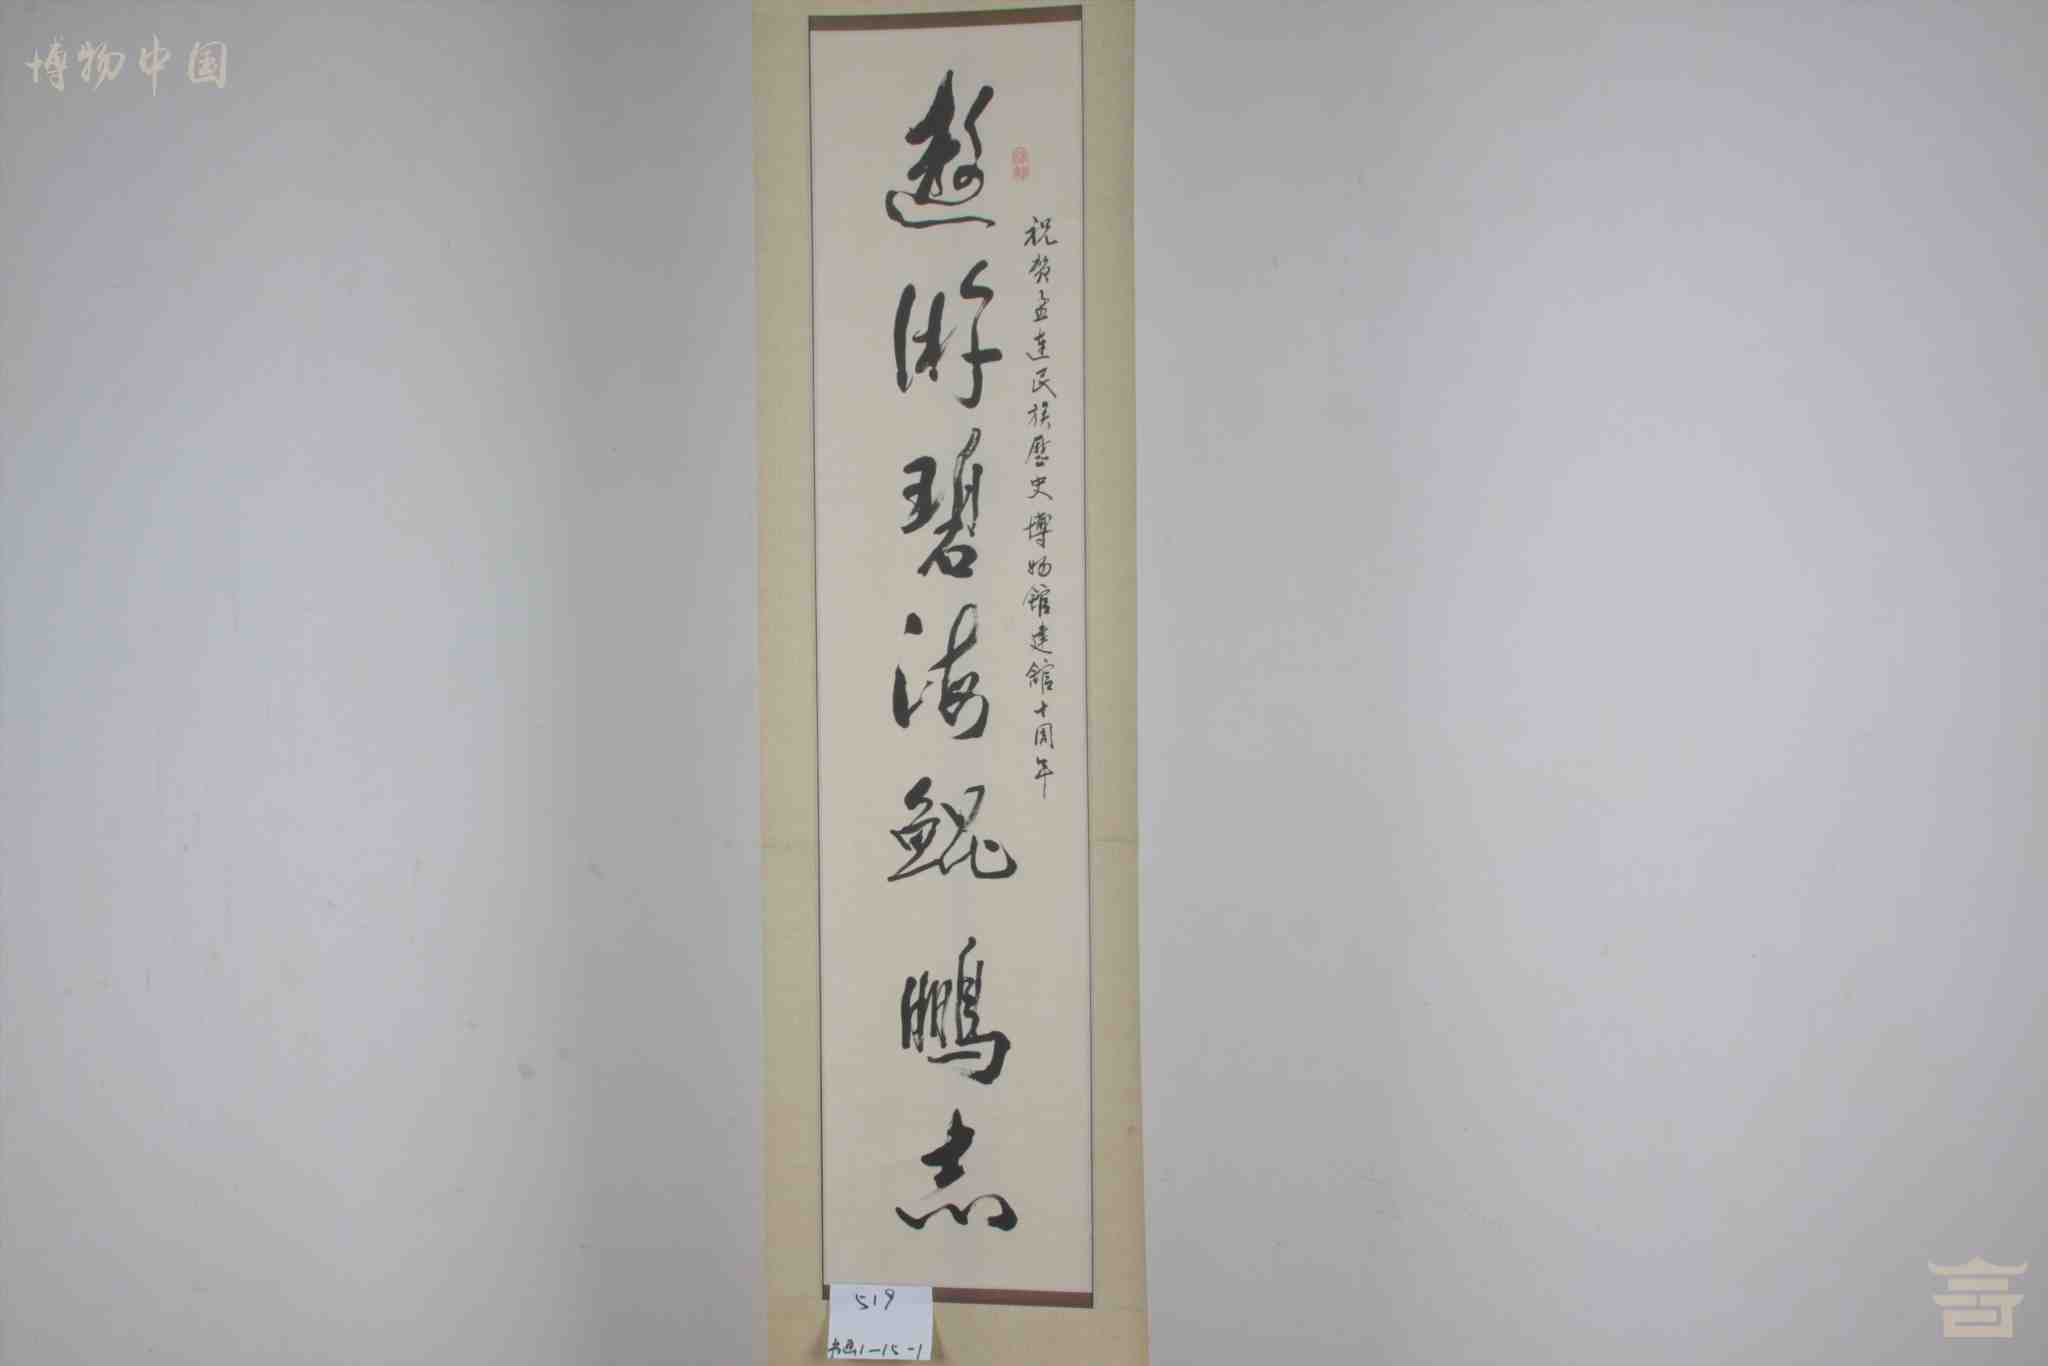 博物中国
祝贺孟连民族歷史博物館建館十周年
遨游碧海鲲鹏志
519
书画1-15-1